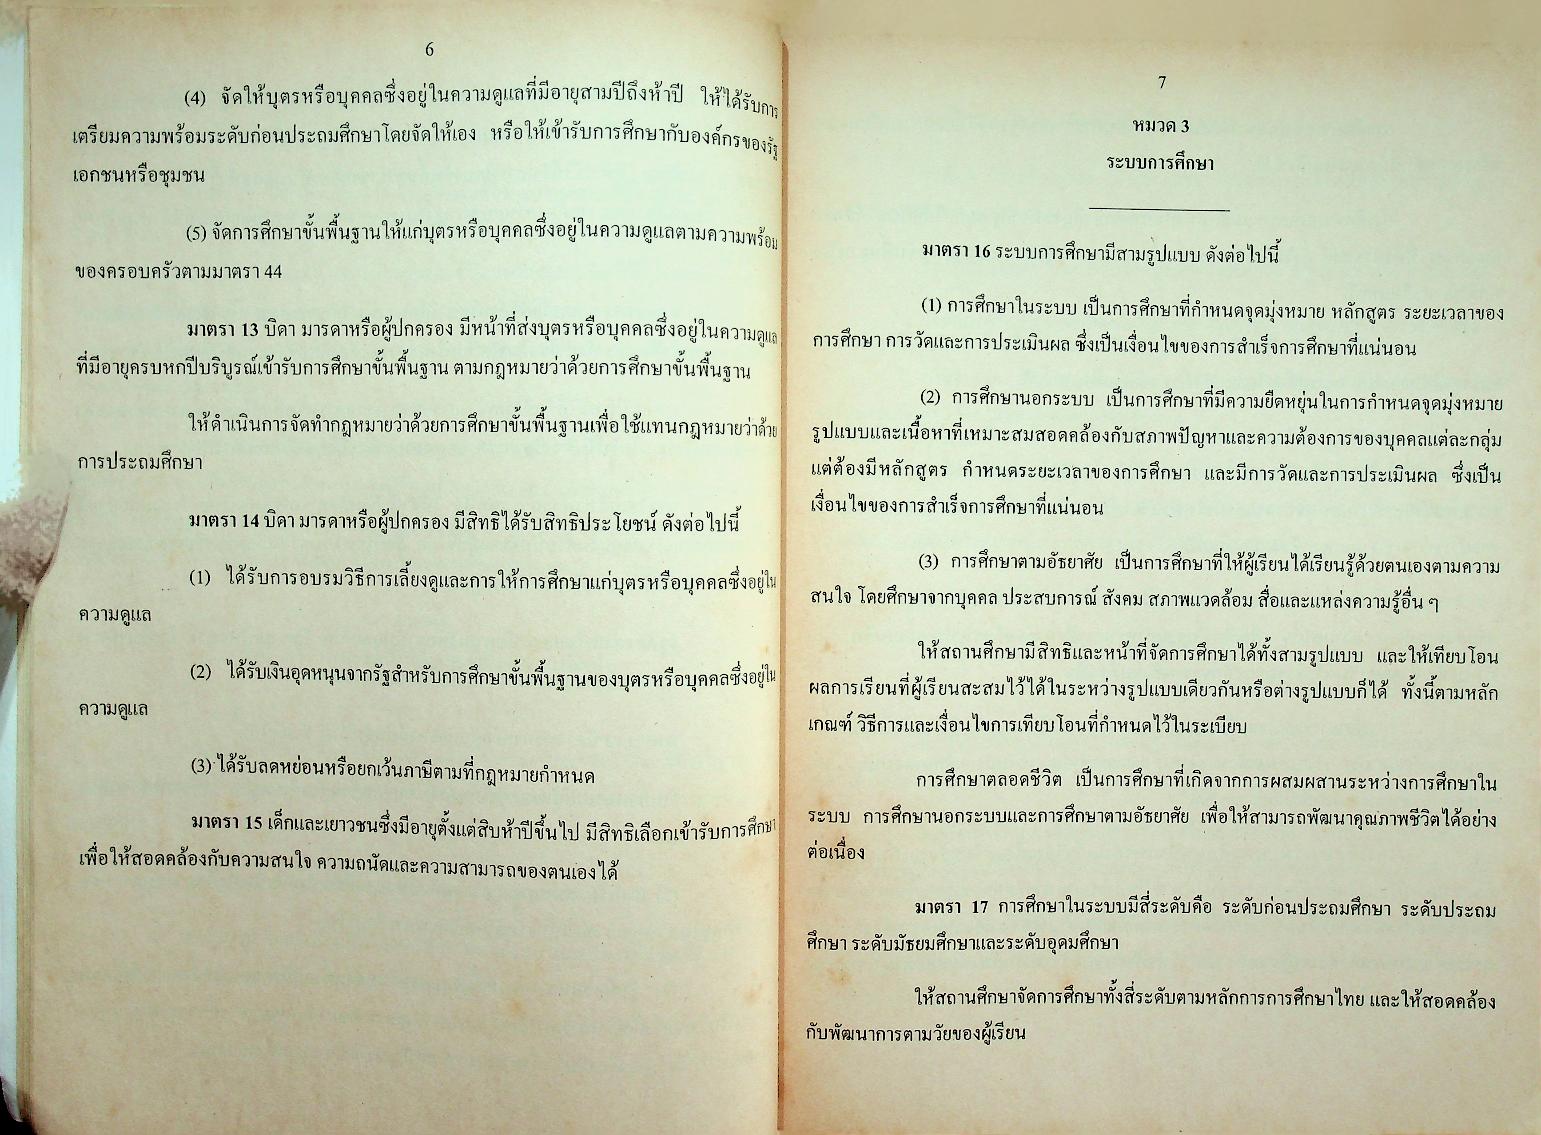 6
(4) จัดให้บุตรหรือบุคคลซึ่งอยู่ในความดูแลที่มีอายุสามปีถึงห้าปี ให้ได้รับการ
เตรียมความพร้อมระดับก่อนประถมศึกษาโดยจัดให้เอง หรือให้เข้ารับการศึกษากับองค์กรของรัฐ
เอกชนหรือชุมชน
(5) จัดการศึกษาขั้นพื้นฐานให้แก่บุตรหรือบุคคลซึ่งอยู่ในความดูแลตามความพร้อม
ของครอบครัวตามมาตรา 44
มาตรา 13 บิดา มารดาหรือผู้ปกครอง มีหน้าที่ส่งบุตรหรือบุคคลซึ่งอยู่ในความดูแล
ที่มีอายุครบหกปีบริบูรณ์เข้ารับการศึกษาขั้นพื้นฐาน ตามกฎหมายว่าด้วยการศึกษาขั้นพื้นฐาน
ให้ดำเนินการจัดทำกฎหมายว่าด้วยการศึกษาขั้นพื้นฐานเพื่อใช้แทนกฎหมายว่าด้วย
การประถมศึกษา
มาตรา 14 บิดา มารดาหรือผู้ปกครอง มีสิทธิได้รับสิทธิประโยชน์ ดังต่อไปนี้
(1) ได้รับการอบรมวิธีการเลี้ยงดูและการให้การศึกษาแก่บุตรหรือบุคคลซึ่งอยู่ใน
ความดูแล
(2) ได้รับเงินอุดหนุนจากรัฐสำหรับการศึกษาขั้นพื้นฐานของบุตรหรือบุคคลซึ่งอยู่ใน
ความดูแล
(3) ได้รับลดหย่อนหรือยกเว้นภาษีตามที่กฎหมายกำหนด
มาตรา 15 เด็กและเยาวชนซึ่งมีอายุตั้งแต่สิบห้าปีขึ้นไป มีสิทธิเลือกเข้ารับการศึกษา
เพื่อให้สอดคล้องกับความสนใจ ความถนัดและความสามารถของตนเองได้
7
หมวด 3
ระบบการศึกษา
มาตรา 16 ระบบการศึกษามีสามรูปแบบ ดังต่อไปนี้
(1) การศึกษาในระบบ เป็นการศึกษาที่กำหนดจุดมุ่งหมาย หลักสูตร ระยะเวลาของ
การศึกษา การวัดและการประเมินผล ซึ่งเป็นเงื่อนไขของการสำเร็จการศึกษาที่แน่นอน
(2) การศึกษานอกระบบ เป็นการศึกษาที่มีความยืดหยุ่นในการกำหนดจุดมุ่งหมาย
รูปแบบและเนื้อหาที่เหมาะสมสอดคล้องกับสภาพปัญหาและความต้องการของบุคคลแต่ละกลุ่ม
แต่ต้องมีหลักสูตร กำหนดระยะเวลาของการศึกษา และมีการวัดและการประเมินผล ซึ่งเป็น
เงื่อนไขของการสำเร็จการศึกษาที่แน่นอน
(3) การศึกษาตามอัธยาศัย เป็นการศึกษาที่ให้ผู้เรียนได้เรียนรู้ด้วยตนเองตามความ
สนใจ โดยศึกษาจากบุคคล ประสบการณ์ สังคม สภาพแวดล้อม สื่อและแหล่งความรู้อื่น ๆ
ให้สถานศึกษามีสิทธิและหน้าที่จัดการศึกษาได้ทั้งสามรูปแบบ และให้เทียบโอน
ผลการเรียนที่ผู้เรียนสะสมไว้ได้ในระหว่างรูปแบบเดียวกันหรือต่างรูปแบบก็ได้ ทั้งนี้ตามหลัก
เกณฑ์ วิธีการและเงื่อนไขการเทียบโอนที่กำหนดไว้ในระเบียบ
การศึกษาตลอดชีวิต เป็นการศึกษาที่เกิดจากการผสมผสานระหว่างการศึกษาใน
ระบบ การศึกษานอกระบบและการศึกษาตามอัธยาศัย เพื่อให้สามารถพัฒนาคุณภาพชีวิตได้อย่าง
ต่อเนื่อง
มาตรา 17 การศึกษาในระบบมีสี่ระดับคือ ระดับก่อนประถมศึกษา ระดับประถม
ศึกษา ระดับมัธยมศึกษาและระดับอุดมศึกษา
ให้สถานศึกษาจัดการศึกษาทั้งสี่ระดับตามหลักการการศึกษาไทย และให้สอดคล้อง
กับพัฒนาการตามวัยของผู้เรียน